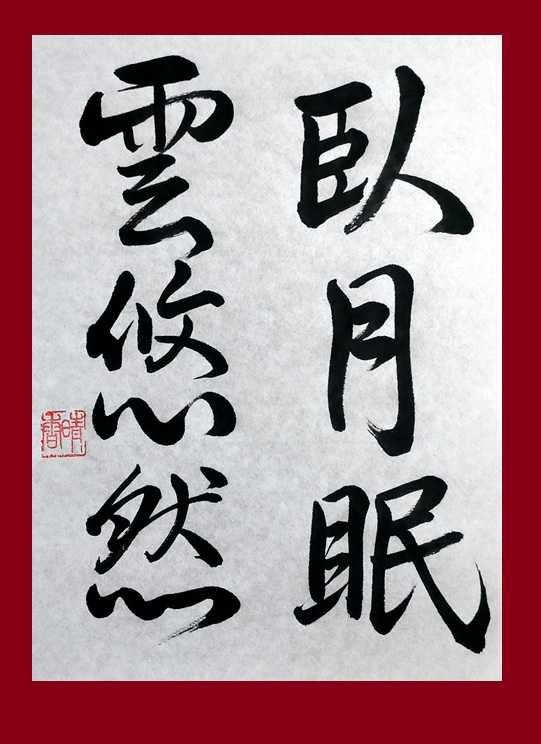 臥月眠
雲悠然